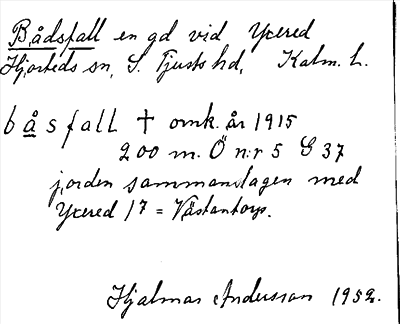 Bådsfall en gd vid Yxered
Hjorteds sn, S. Tjusts hd, Kalm. l.
båsfall † omk. år 1915
200 m. Ö n:r 5 G 37
jorden sammanslagen med
Yxered 17 = Västantorp.
Hjalmar Andersson 1952.